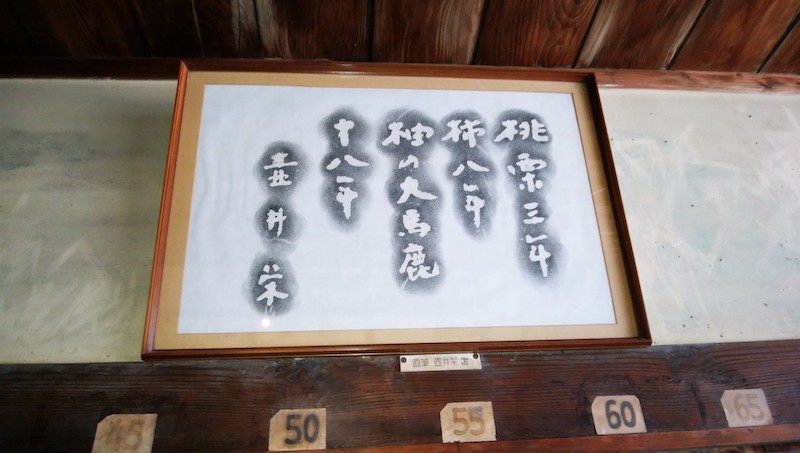 桃栗三年
柿八年
柚の大馬鹿
十八年
壷井栄
直筆 壺井栄 書
45
50
55
60
65